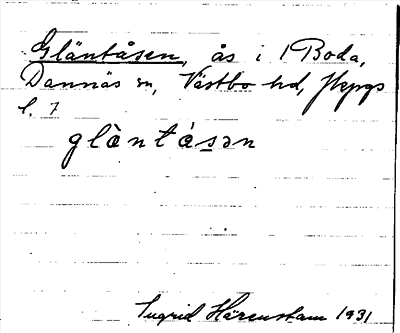 Gläntåsen, ås i Boda,
Dannäs sn, Västbo hd, Jkpgs
l.
glàntásən
Ingrid Härenstam 1931